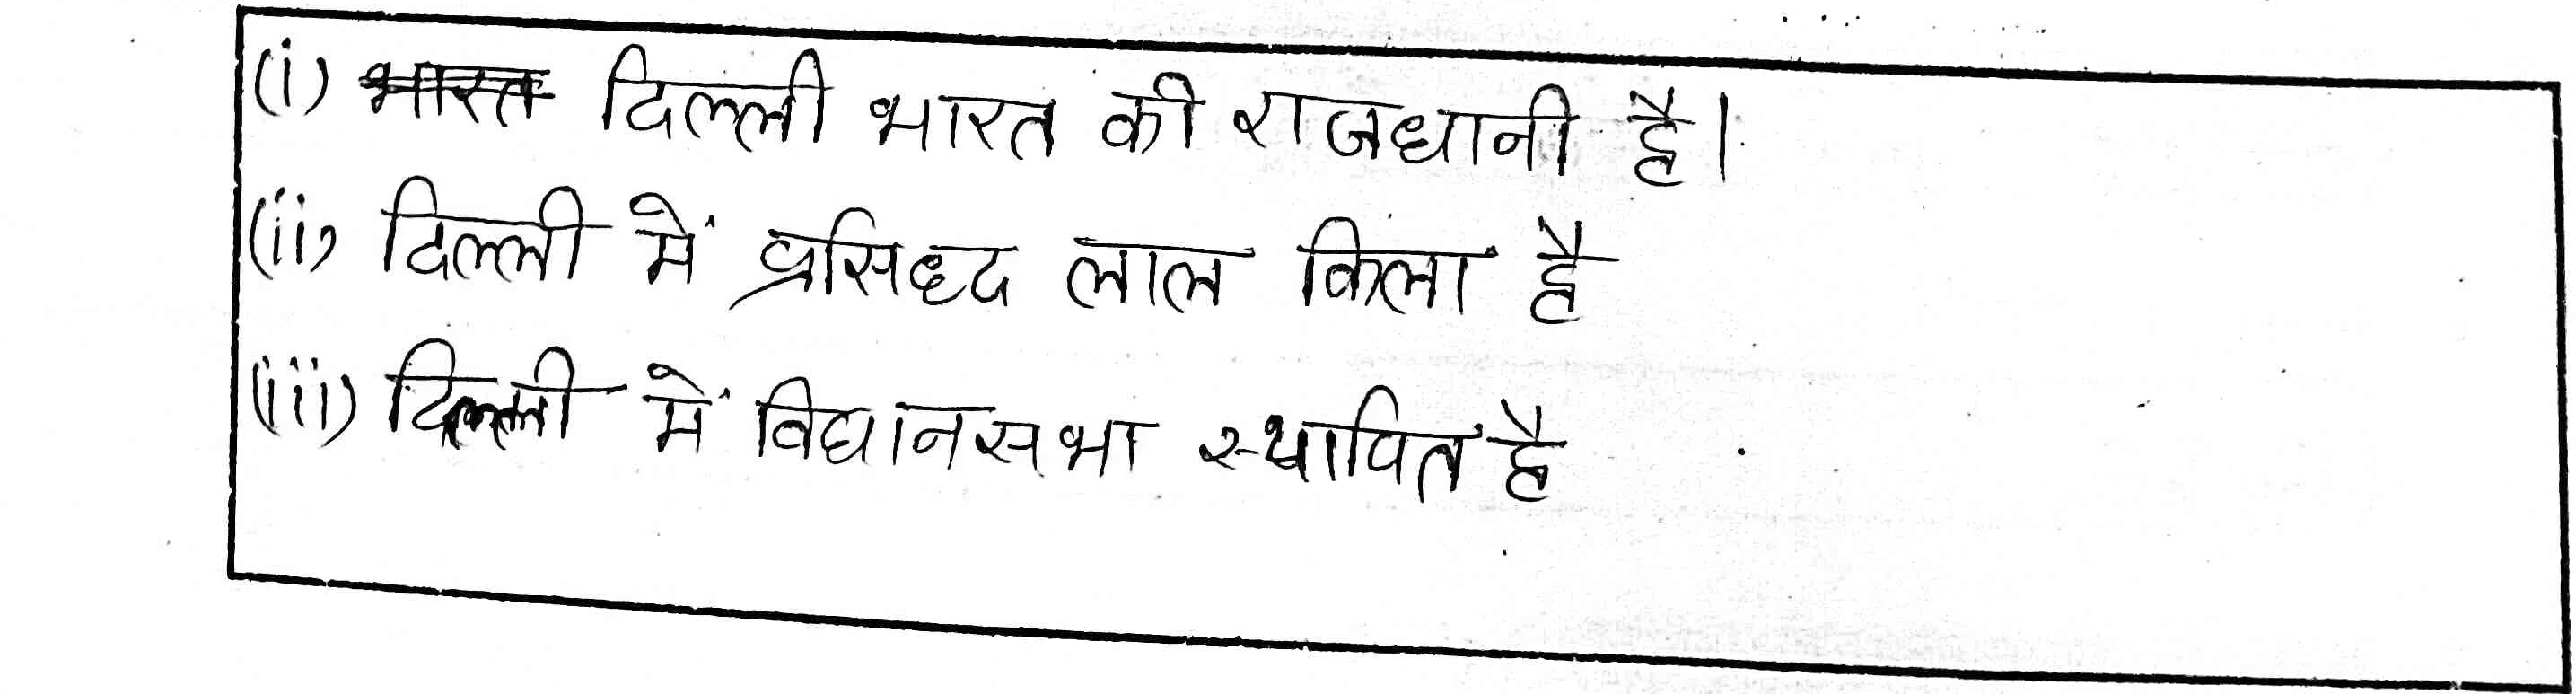 (i) भारत दिल्ली भारत की राजधानी है।
(ii) दिल्ली में प्रसिध्द लाल किला है
(iii) दिल्ली में विधानसभा स्थापित है